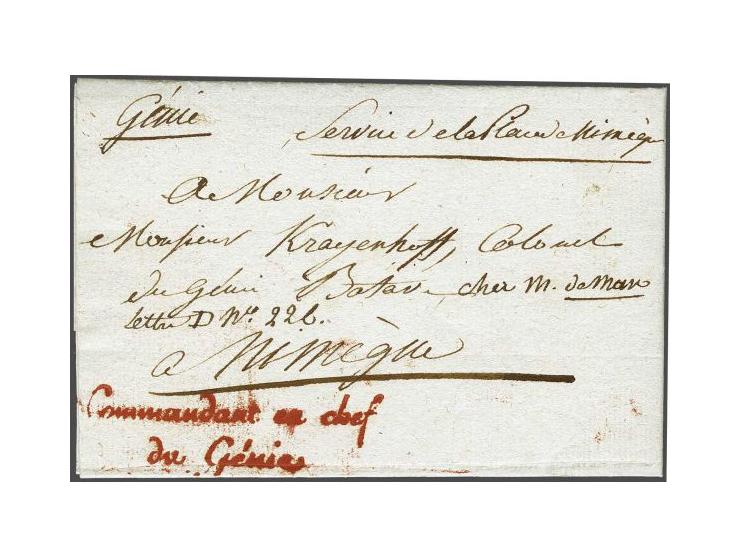 Génie
Service de la Place Nimègue
A Monsieur
Monsieur Krayenhoff, Colonel
du Génie Batave, cher M. de Man
lettre D N.º 226.
a Nimègue
Commandant en chef
du Génie